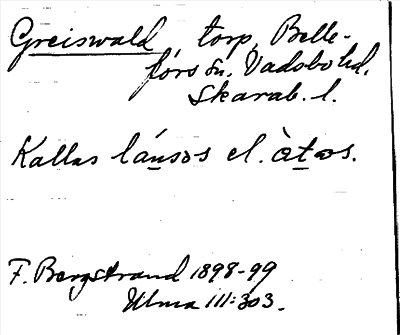 Greiswald, torp, Belle-
fors sn. Vadsbo hd.
Skarab. l.
Kallas el.
F. Bergstrand 1898-99
Ulma 111:303.